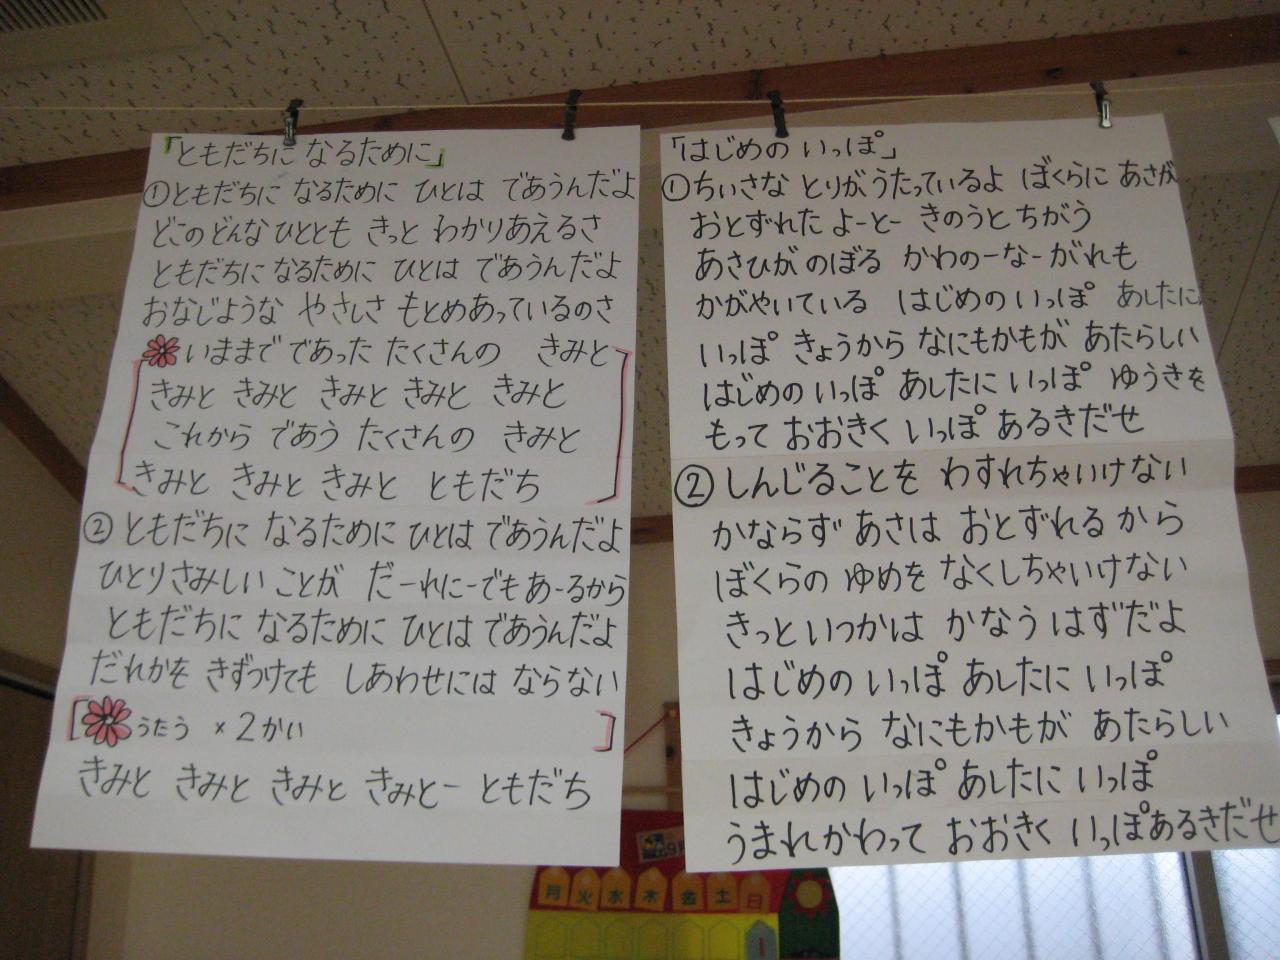 「ともだちに なるために」
①ともだちに なるために ひとは であうんだよ
どこの どんな ひととも きっと わかりあえるさ
ともだちに なるために ひとは であうんだよ
おなじような やさしさ もとめあっているのさ
いままで であった たくさんの きみと
きみと きみと きみと きみと きみと
これから であう たくさんの きみと
きみと きみと きみと ともだち
② ともだちに なるために ひとは であうんだよ
ひとりさみしい ことが だーれにーでもあーるから
ともだちに なるために ひとは であうんだよ
だれかを きずつけても しあわせには ならない
うたう ×2かい
きみと きみと きみと きみとー ともだち
「はじめの いっぽ」
①ちいさな とりが うたっているよ ぼくらに あさが
おとずれた よーとー きのうと ちがう
あさひが のぼる かわのーなーがれも
かがやいている はじめの いっぽ あしたに
いっぽ きょうから なにもかもが あたらしい
はじめの いっぽ あしたに いっぽ ゆうきを
もって おおきく いっぽ あるきだせ
② しんじることを わすれちゃいけない
かならず あさは おとずれる から
ぼくらの ゆめを なくしちゃいけない
きっと いつかは かなう はずだよ
はじめの いっぽ あしたに いっぽ
きょうから なにもかもが あたらしい
はじめの いっぽ あしたに いっぽ
うまれ かわって おおきく いっぽ あるきだせ
月 火 水 木 金 土 日
1